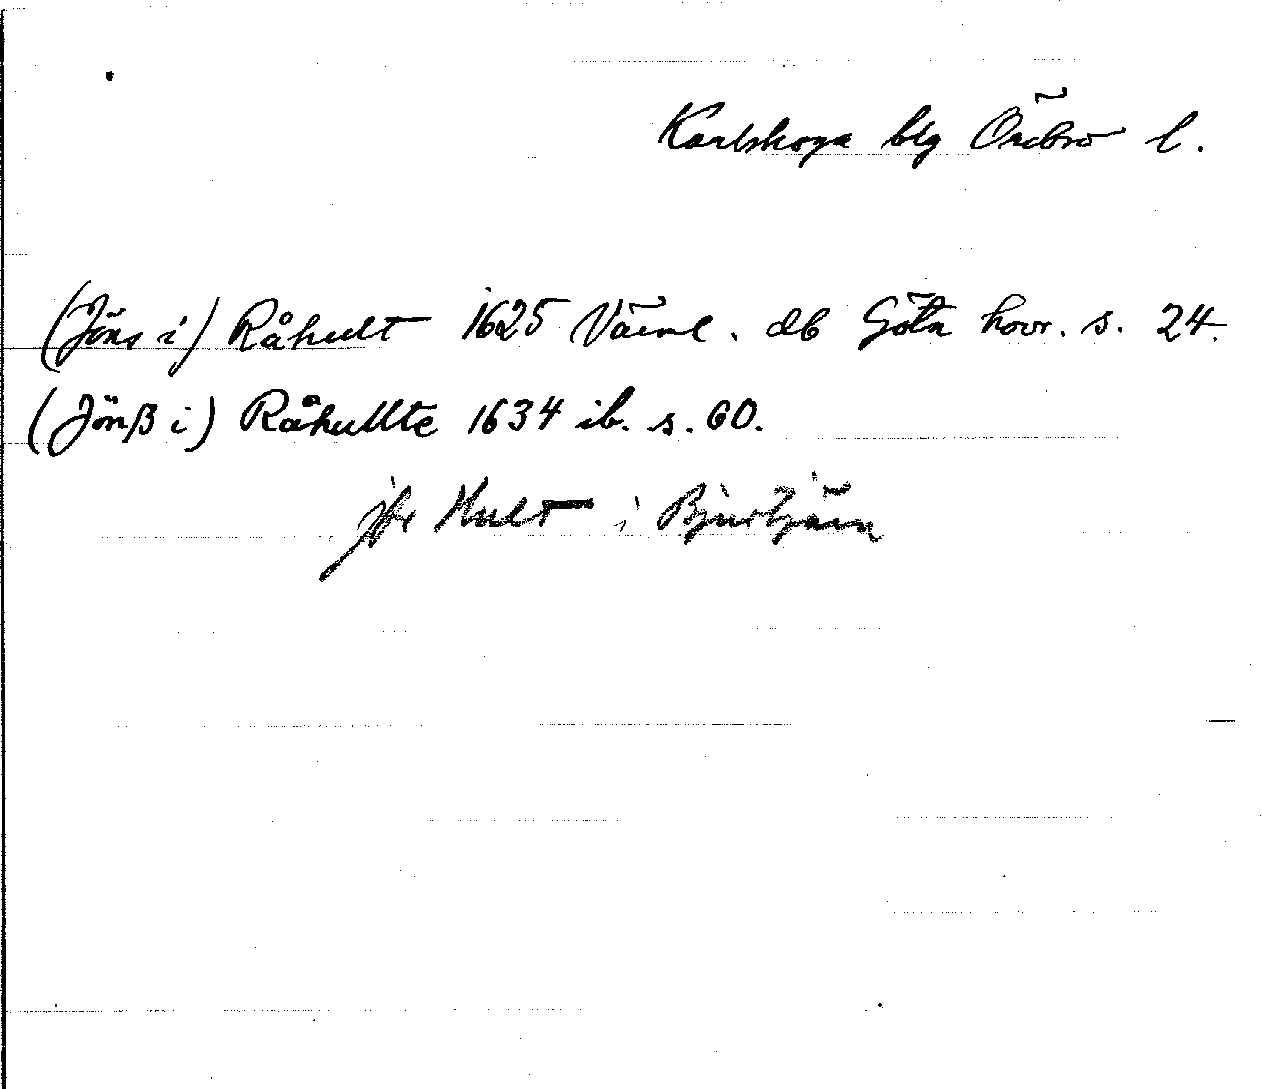 Karlskoga blg Örebro l.
(Jöns i) Råhult 1625 Värml. db Göta hovr. s. 24.
(Jönß i) Råhullte 1634 ib. s. 60.
jfr Hult i Bjurtjärn